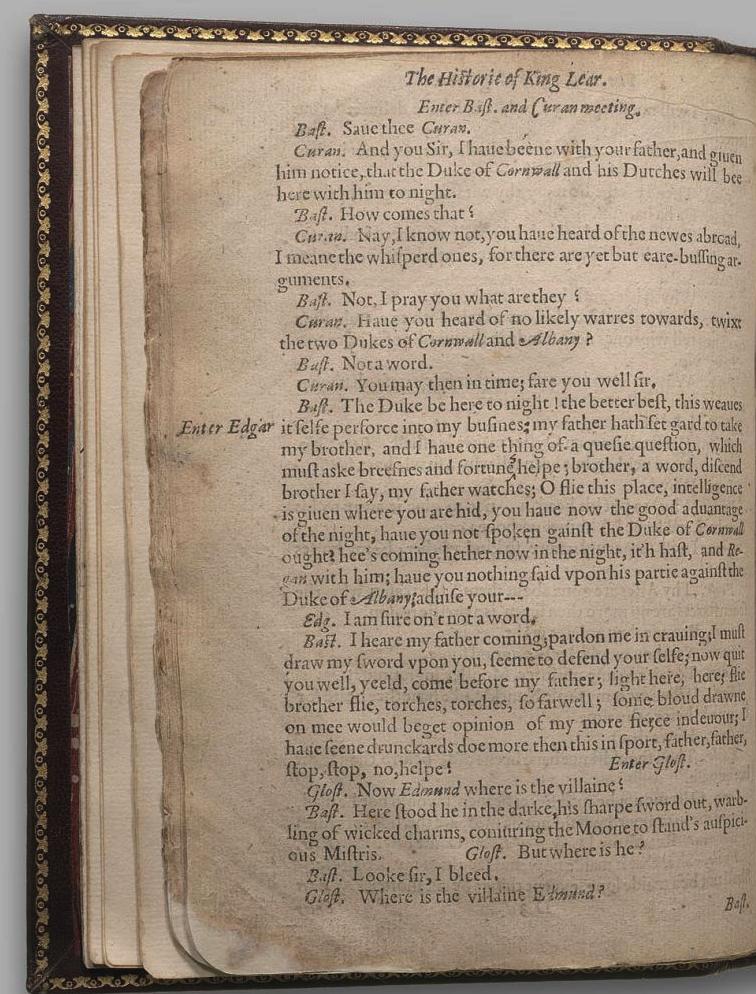 The Historie of King Lear.
Enter Bast. and Curan meeting.
Bast. Saue thee Curan.
Curan. And you Sir, I haue beene with your father, and giuen
him notice, that the Duke of Cornwall and his Dutches will bee
here with him to night.
Bast. How comes that?
Curan. Nay, I know not, you haue heard of the newes abroad,
I meane the whiſperd ones, for there are yet but eare-buſsing ar-
guments.
Bast. Not, I pray you what are they?
Curan. Haue you heard of no likely warres towards, twixt
the two Dukes of Cornwall and Albany?
Bast. Not a word.
Curan. You may then in time; fare you well ſir.
Bast. The Duke be here to night! the better beſt, this weaues
Enter Edgar it ſelfe perforce into my buſines; my father hath ſet gard to take
my brother, and I haue one thing of a queſie queſtion, which
muſt aske breefnes and fortune helpe; brother, a word, diſcend
brother I ſay, my father watches; O flie this place, intelligence
is giuen where you are hid, you haue now the good aduantage
of the night, haue you not ſpoken gainſt the Duke of Cornwall
ought? hee's coming hether now in the night, it'h haſt, and Re-
gan with him; haue you nothing ſaid vpon his partie againſt the
Duke of Albany; aduiſe your---
Edg. I am ſure on't not a word.
Bast. I heare my father coming; pardon me in crauing; I muſt
draw my ſword vpon you, ſeeme to defend your ſelfe; now quit
you well, yeeld, come before my father; light here, here; flie
brother flie, torches, torches, ſo farwell; ſome bloud drawne
on mee would beget opinion of my more fierce indeuour; I
haue ſeene drunckards doe more then this in ſport, father, father,
ſtop, ſtop, no, helpe? Enter Gloſt.
Gloſt. Now Edmund where is the villaine?
Bast. Here ſtood he in the darke, his ſharpe ſword out, warb-
ling of wicked charms, coniuring the Moone to ſtand's auſpici-
ous Miſtris. Gloſt. But where is he?
Bast. Looke ſir, I bleed.
Gloſt. Where is the villaine Edmund?
Bast.